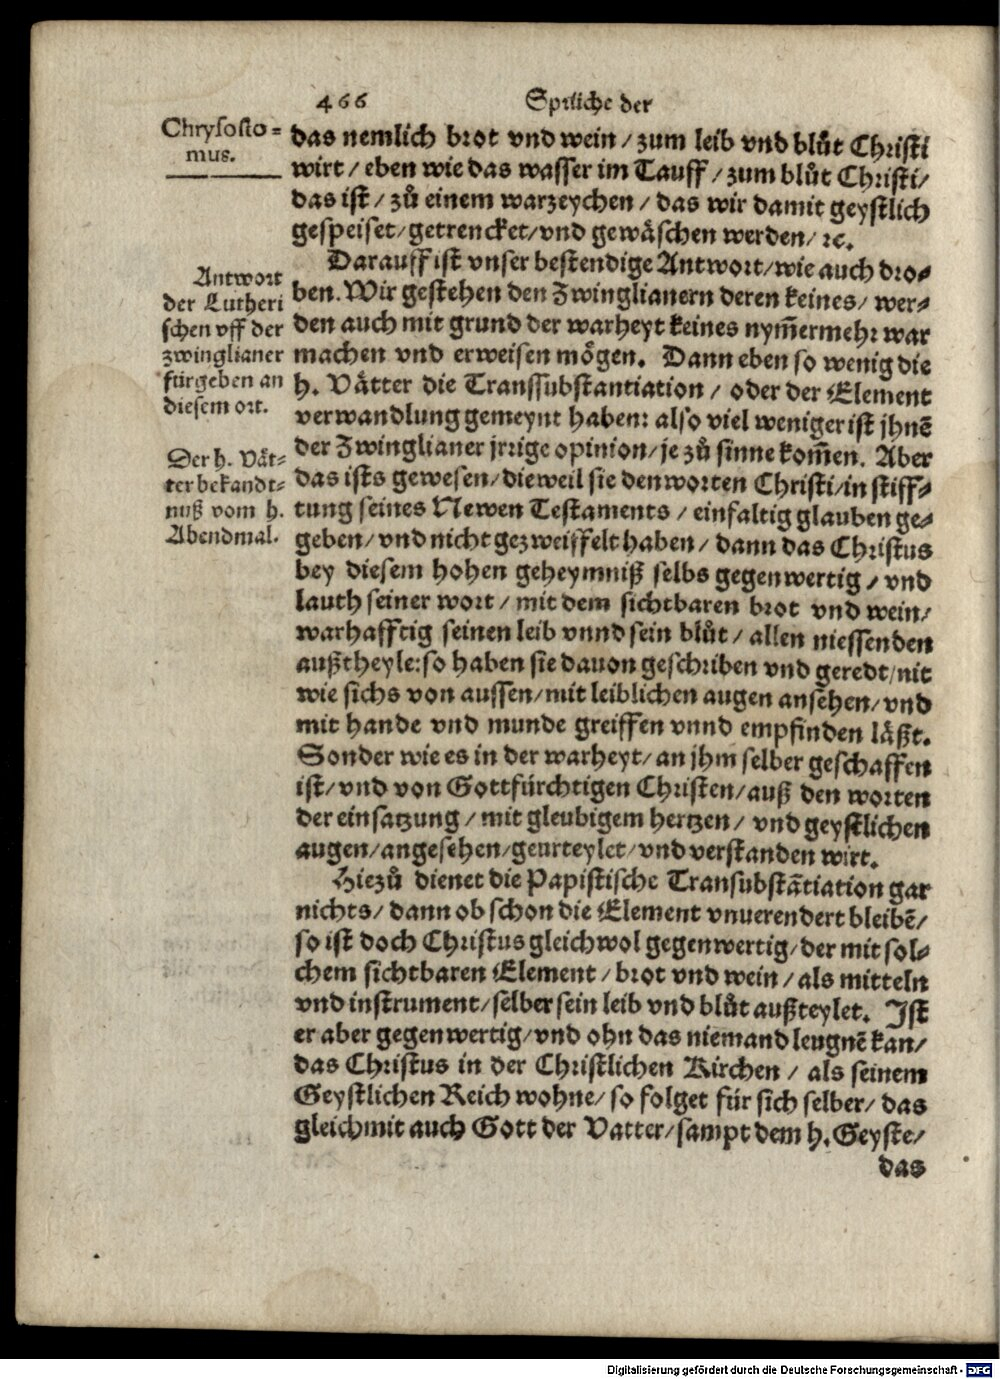 466 Sprüche der
Chrysosto=
mus.
das nemlich brot vnd wein / zum leib vnd blůt Christi
wirt / eben wie das wasser im Tauff / zum blůt Christi /
das ist / zů einem warzeychen / das wir damit geystlich
gespeiset / getrencket / vnd gewäschen werden / ꝛc.
Antwort
der Lutheri
schen vff der
zwinglianer
fürgeben an
diesem ort.
Darauff ist vnser bestendige Antwort / wie auch dro=
ben. Wir gestehen den Zwinglianern deren keines / wer=
den auch mit grund der warheyt keines nym̃ermehr war
machen vnd erweisen mögen. Dann eben so wenig die
h. Vätter die Transsubstantiation / oder der Element
verwandlung gemeynt haben: also viel weniger ist jhnẽ
der Zwinglianer jrrige opinion / je zů sinne kom̃en. Aber
Der h. Vät=
ter bekandt=
nuß vom h.
Abendmal.
das ists gewesen / dieweil sie den worten Christi / in stiff=
tung seines Newen Testaments / einfaltig glauben ge=
geben / vnd nicht gezweiffelt haben / dann das Christus
bey diesem hohen geheymniß selbs gegenwertig / vnd
lauth seiner wort / mit dem sichtbaren brot vnd wein /
warhafftig seinen leib vnnd sein blůt / allen niessenden
außtheyle: so haben sie dauon geschriben vnd geredt / nit
wie sichs von aussen / mit leiblichen augen ansehen / vnd
mit hande vnd munde greiffen vnnd empfinden läßt.
Sonder wie es in der warheyt / an jhm selber geschaffen
ist / vnd von Gottfürchtigen Christen / auß den worten
der einsatzung / mit gleubigem hertzen / vnd geystlichen
augen / angesehen / geurteylet / vnd verstanden wirt.
Hiezů dienet die Papistische Transubstãtiation gar
nichts / dann ob schon die Element vnuerendert bleibẽ /
so ist doch Christus gleichwol gegenwertig / der mit sol=
chem sichtbaren Element / brot vnd wein / als mitteln
vnd instrument / selber sein leib vnd blůt außteylet. Ist
er aber gegenwertig / vnd ohn das niemand leugnẽ kan /
das Christus in der Christlichen Kirchen / als seinem
Geystlichen Reich wohne / so folget für sich selber / das
gleich mit auch Gott der Vatter / sampt dem h. Geyste /
das
Digitalisierung gefördert durch die Deutsche Forschungsgemeinschaft - DFG